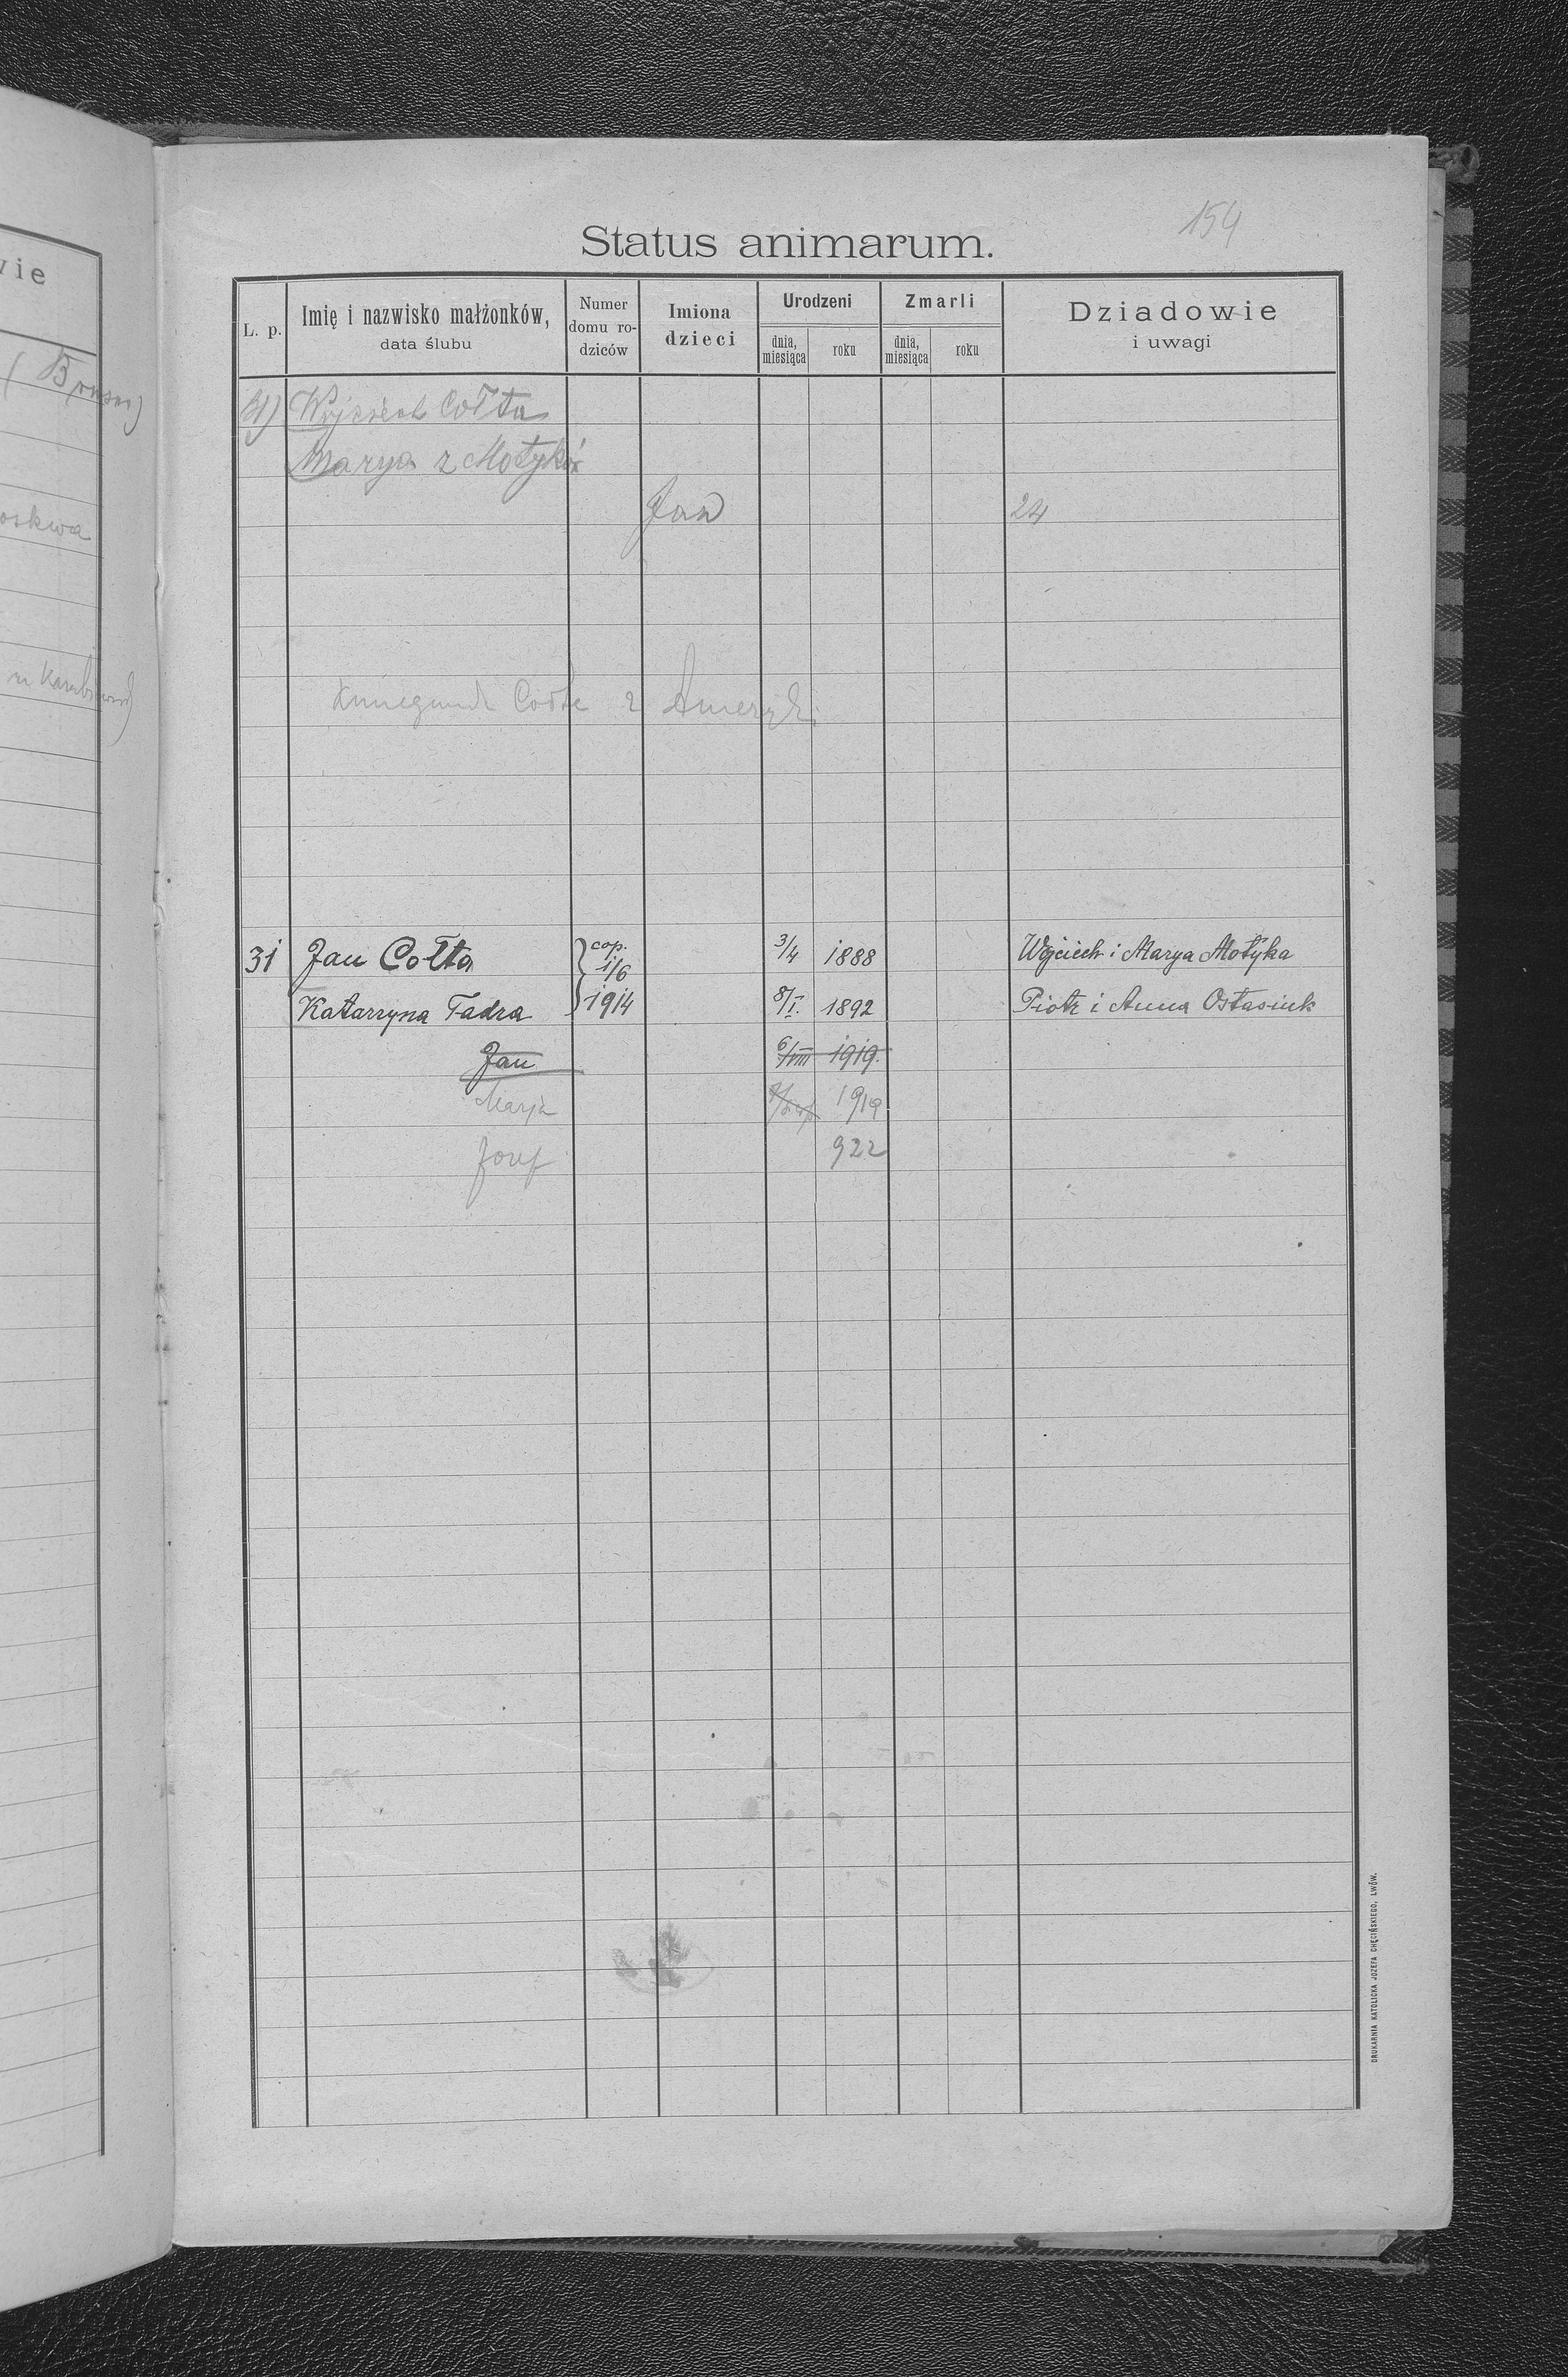 154
Status animarum.
L. p.
Imię i nazwisko małżonków,
data ślubu
Numer
domu ro-
dziców
Imiona
dzieci
Urodzeni
dnia,
miesiąca
roku
Zmarli
dnia,
miesiąca
roku
Dziadowie
i uwagi
31) Wojciech Cołta
Marya z Motyków
Jan 24
Cołta z Ameryki
31 Jan Cołta cop. 1/6 3/4 1888 Wojciech i Marya Motyka
Katarzyna Tadra 1914 8/I. 1892 Piotr i Anna Ostasiuk
Jan 6/VIII 1919.
Marja 1919
Józef 922
wie
oskwa
DRUKARNIA KATOLICKA JÓZEFA CHĘCIŃSKIEGO, LWÓW.